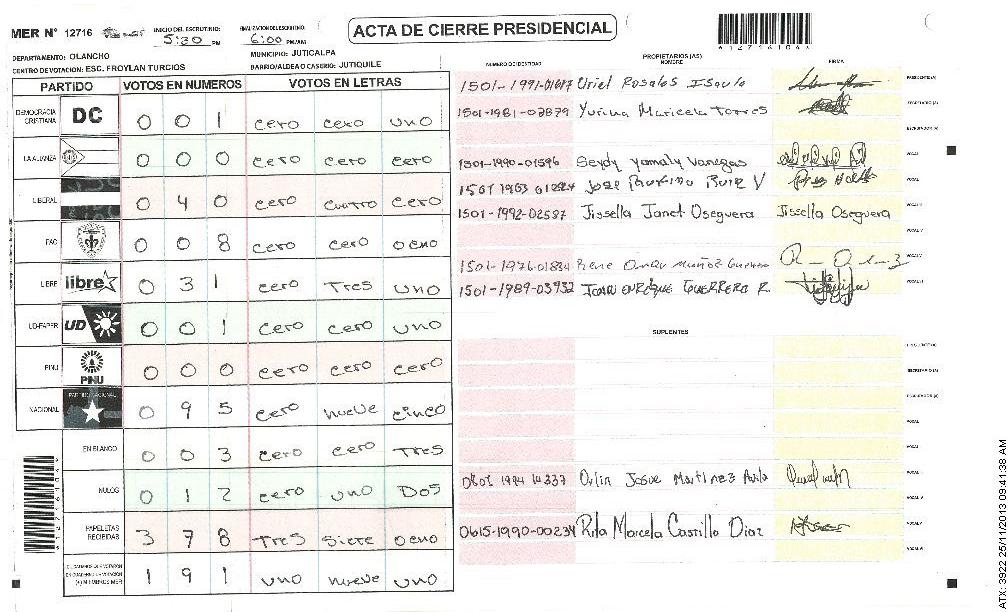 MER N° 12716
INICIO DEL ESCRUTINIO: 5:30 PM
FINALIZACION DEL ESCRUTINIO: 6:00 PM/AM
ACTA DE CIERRE PRESIDENCIAL
DEPARTAMENTO: OLANCHO
MUNICIPIO: JUTICALPA
CENTRO DE VOTACION: ESC. FROYLAN TURCIOS
BARRIO/ALDEA O CASERIO: JUTIQUILE
PARTIDO VOTOS EN NUMEROS VOTOS EN LETRAS
DEMOCRACIA CRISTIANA DC 0 0 1 cero cero uno
LA ALIANZA 0 0 0 cero cero cero
LIBERAL 0 4 0 cero cuatro cero
FAC 0 0 8 cero cero ocho
LIBRE libre 0 3 1 cero Tres uno
UD-FAPER UD 0 0 1 cero cero uno
PINU PINU 0 0 0 cero cero cero
NACIONAL PARTIDO NACIONAL 0 9 5 cero nueve cinco
EN BLANCO 0 0 3 cero cero Tres
NULOS 0 1 2 cero uno Dos
PAPELETAS RECIBIDAS 3 7 8 Tres siete ocho
1 9 1 uno nueve uno
NUMERO DE IDENTIDAD PROPIETARIOS (AS) NOMBRE FIRMA
Uriel Rosales PRESIDENTE (A)
1501-1981-02879 Yurina Maricela Torres SECRETARIO (A)
ESCRUTADOR (A)
1501-1990-01596 Seydy yamaly Vanegas VOCAL
Jose Ruiz V VOCAL
1501-1992-02587 Jissella Janet Oseguera Jissella Oseguera VOCAL
VOCAL
1501-1976-01834 Rene Omar Muñoz VOCAL
1501-1989-03932 JUAN ENRIQUE GUERRERO R. VOCAL
SUPLENTES
PRESIDENTE (A)
SECRETARIO (A)
ESCRUTADOR (A)
VOCAL
VOCAL
Orlin Josue Martinez Avila VOCAL
VOCAL
0615-1990-00234 Rita Marcela Castillo Diaz VOCAL
VOCAL
ATX: 3922 25/11/2013 09:41:38 AM